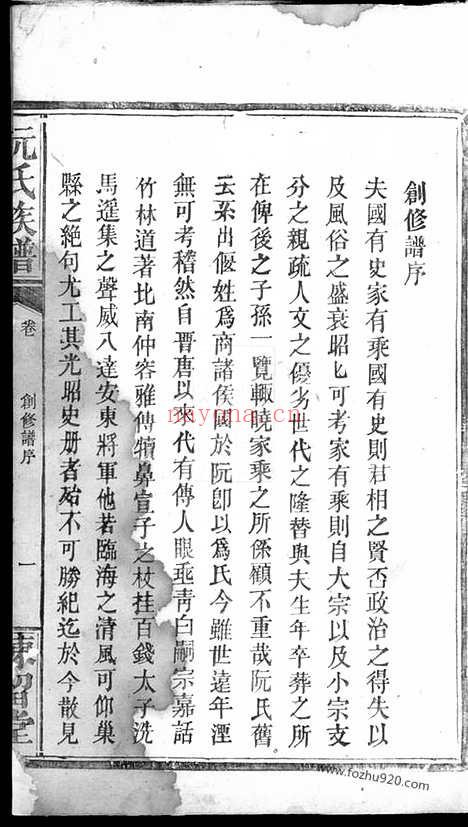 創修譜序
夫國有史家有乘國有史則君相之賢否政治之得失以
及風俗之盛衰昭匕可考家有乘則自大宗以及小宗支
分之親疏人文之優劣世代之隆替與夫生年卒葬之所
在俾後之子孫一覽輙曉家乘之所係顧不重哉阮氏舊
云系出偃姓爲商諸侯國於阮卽以爲氏今雖世遠年湮
無可考稽然自晋唐以來代有傳人眼垂青白嗣宗嘉話
竹林道著比南仲容雅傳犢鼻宣子之杖挂百錢太子洗
馬遥集之聲威八達安東將軍他若臨海之清風可仰巢
縣之絶句尤工其光昭史册者殆不可勝紀迄於今散見
阮氏族譜
卷
創修譜序
一
陳留堂
www.fozhu920.com